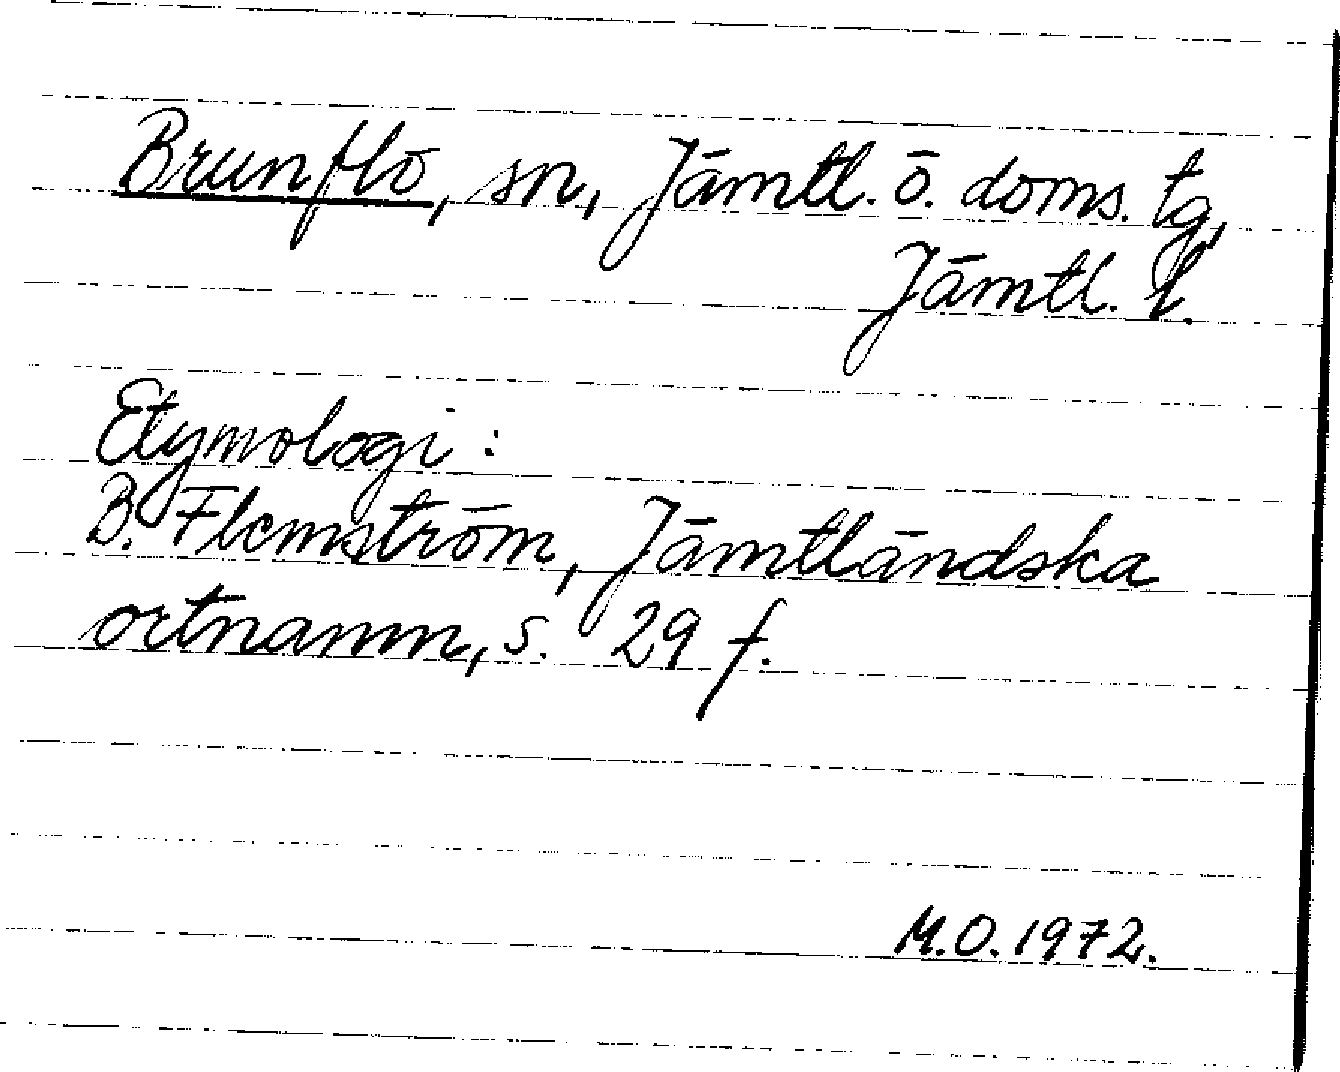 Brunflo, sn, Jämtl. ö. doms. tg,
Jämtl. l.
Etymologi:
B. Flemström, Jämtländska
ortnamn, s. 29 f.
M.O. 1972.